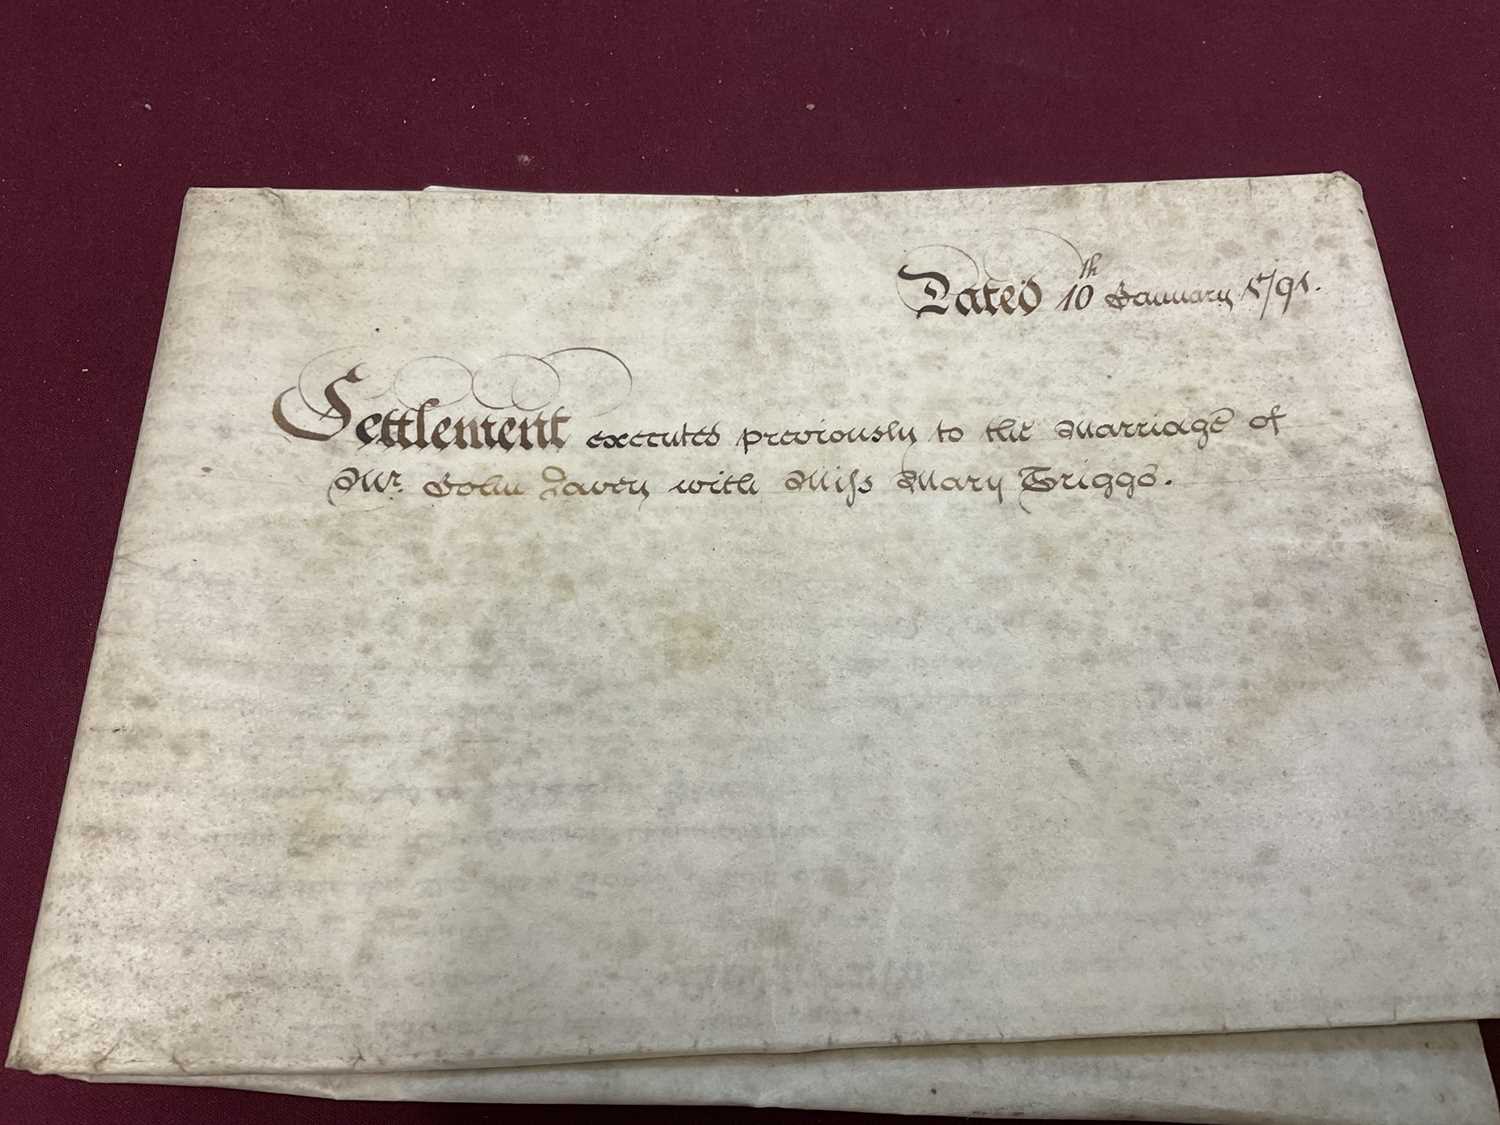 Dated 10th January 1791.
Settlement executed previously to the Marriage of
Mr. John Pavey with Miss Mary Triggs.